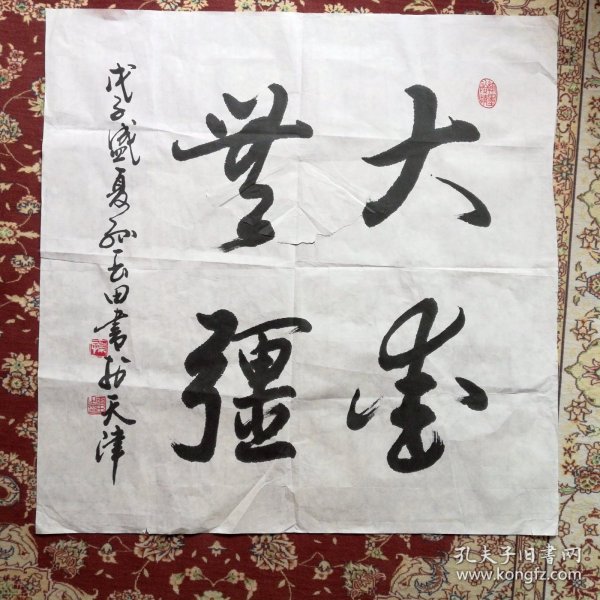 大爱
無疆
戊子盛夏孫玉田書於天津
孔夫子旧书网
www.kongfz.com